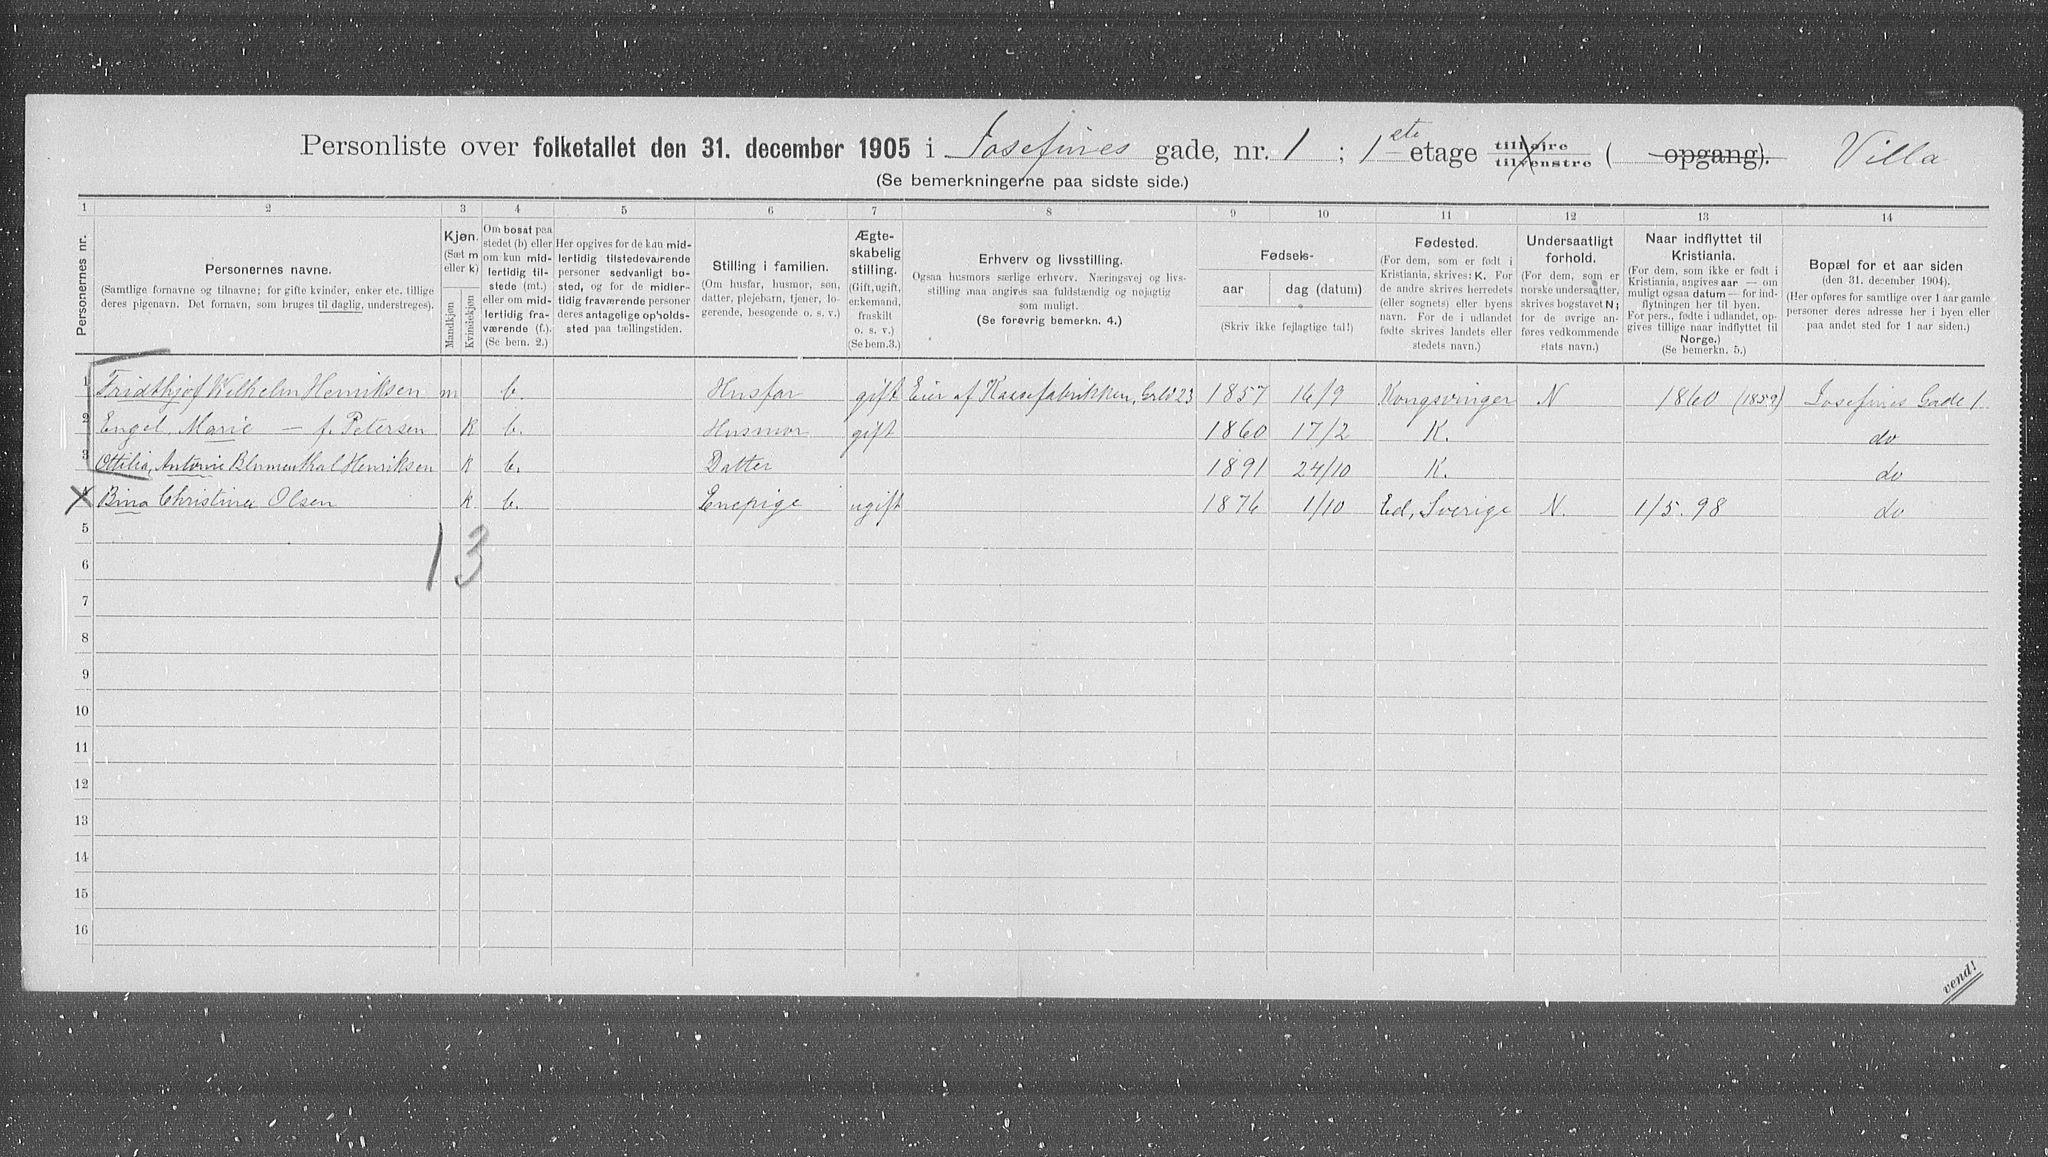 Personliste over folketallet den 31. december 1905 i Josefines gade, nr. 1 ; 1ste etage tilhøjre tilvenstre ( opgang). Villa
(Se bemerkningerne paa sidste side.)
1 2 3 4 5 6 7 8 9 10 11 12 13 14
Personernes nr.
Personernes navne.
(Samtlige fornavne og tilnavne; for gifte kvinder, enker etc. tillige
deres pigenavn. Det fornavn, som bruges til daglig, understreges).
Kjøn.
(Sæt m
eller k)
Mandkjøn
Kvindekjøn
Om bosat paa
stedet (b) eller
om kun mid-
lertidig til-
stede (mt.)
eller om mid-
lertidig fra-
værende (f.).
(Se bem. 2.)
Her opgives for de kun mid-
lertidig tilstedeværende
personer sedvanligt bo-
sted, og for de midler-
tidig fraværende personer
deres antagelige opholds-
sted paa tællingstiden.
Stilling i familien.
(Om husfar, husmor, søn,
datter, plejebarn, tjener, lo-
gerende, besøgende o. s. v.)
Ægte-
skabelig
stilling.
(Gift, ugift,
enkemand,
fraskilt
o. s. v.)
(Se bem.3.)
Erhverv og livsstilling.
Ogsaa husmors særlige erhverv. Næringsvej og livs-
stilling maa angives saa fuldstændig og nøjagtig
som muligt.
(Se forøvrig bemerkn. 4.)
Fødsels-
aar dag (datum)
(Skriv ikke fejlagtige tal!)
Fødested.
(For dem, som er født i
Kristiania, skrives: K. For
de andre skrives herredets
(eller sognets) eller byens
navn. For de i udlandet
fødte skrives landets eller
stedets navn.)
Undersaatligt
forhold.
(For dem, som er
norske undersaatter,
skrives bogstavet N;
for de øvrige an-
føres vedkommende
stats navn.)
Naar indflyttet til
Kristiania.
(For dem, som ikke er født i
Kristiania, angives aar — om
muligt ogsaa datum — for ind-
flytningen her til byen.
For pers., fødte i udlandet, op-
gives tillige naar indflyttet til
Norge.)
(Se bemerkn. 5.)
Bopæl for et aar siden
(den 31. december 1904).
(Her opføres for samtlige over 1 aar gamle
personer deres adresse her i byen eller
paa andet sted for 1 aar siden.)
1 Fridthjof Wilhelm Henriksen m b. Husfar gift Eier af Kassefabrikken, 23 1857 16/9 Kongsvinger N 1860 (1859) Josefines Gade 1
2 Engel Marie — f. Petersen k b. Husmor gift 1860 17/2 K. do
3 Ottilia, Antonie Blumenthal Henriksen k b. Datter 1891 24/10 K. do
4 Bina Christina Olsen k b. Enepige ugift 1876 1/10 Ed, Sverige N. 1/5. 98 do
5
1 3
6
7
8
9
10
11
12
13
14
15
16
vend!